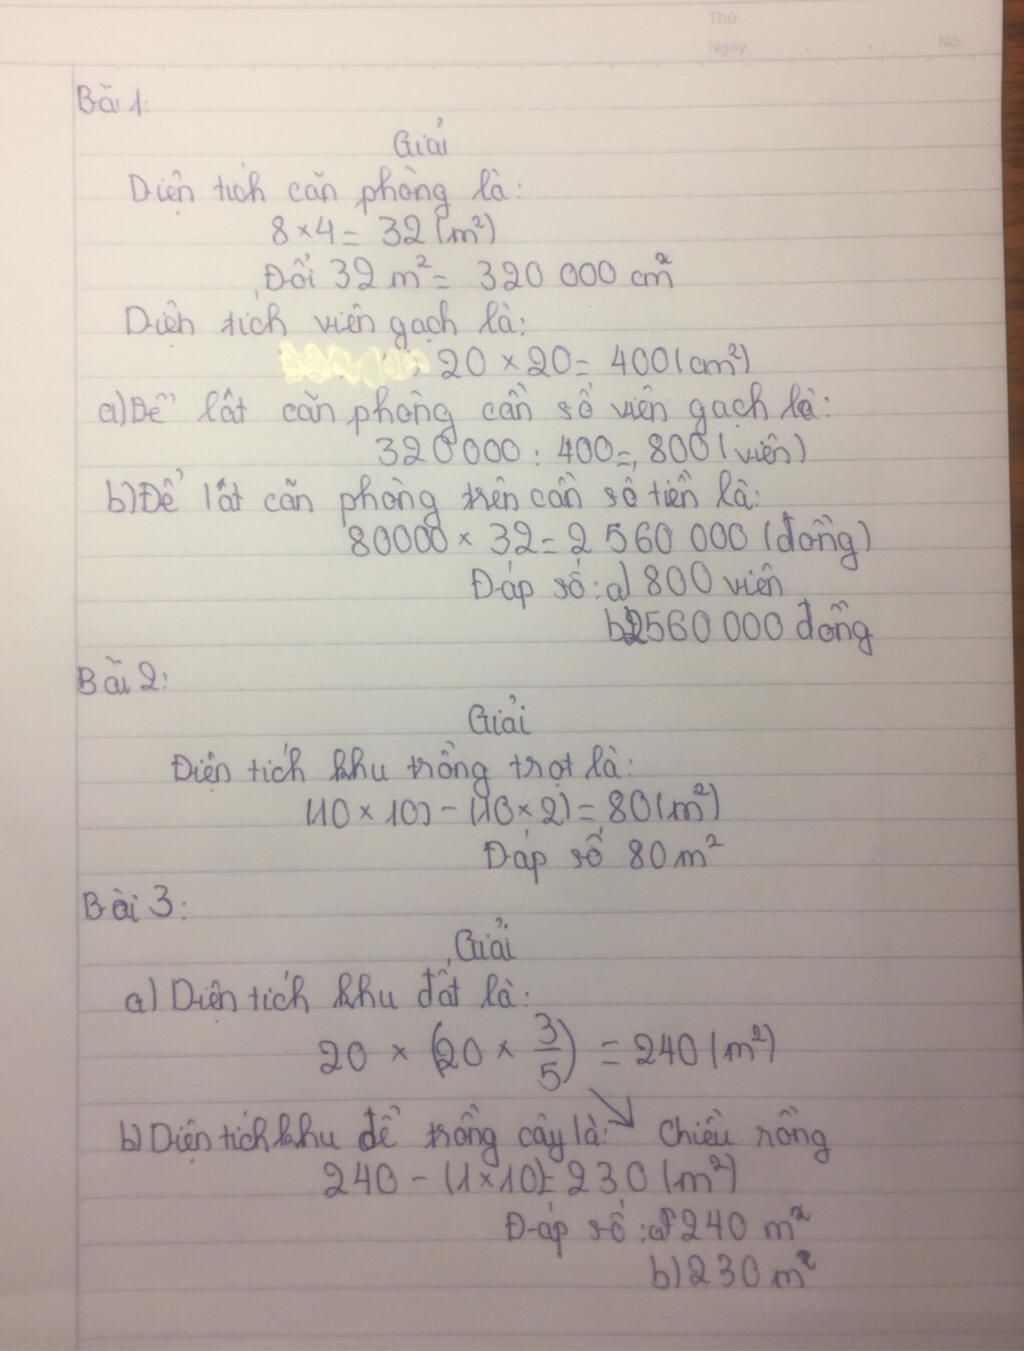 Thứ
Ngày No.
Bài 1:
Giải
Diện tích căn phòng là:
8 × 4 = 32 (m²)
Đổi 32 m² = 320 000 cm²
Diện tích viên gạch là:
20 × 20 = 400 (cm²)
a) Để lát căn phòng cần số viên gạch là:
320 000 : 400 = 800 (viên)
b) Để lát căn phòng trên cần số tiền là:
80000 × 32 = 2 560 000 (đồng)
Đáp số: a) 800 viên
b) 2560 000 đồng
Bài 2:
Giải
Diện tích khu trồng trọt là:
(10 × 10) - (10 × 2) = 80 (m²)
Đáp số 80 m²
Bài 3:
Giải
a) Diện tích khu đất là:
20 × (20 × 3/5) = 240 (m²)
b) Diện tích khu để trồng cây là: Chiều rồng
240 - (1 × 10) = 230 (m²)
Đáp số: a) 240 m²
b) 230 m²